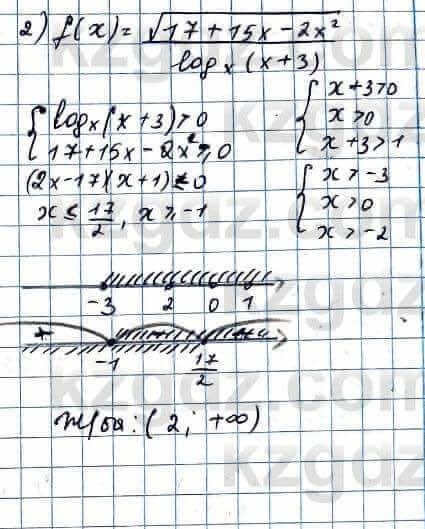 2) f(x) = √(17 + 15x − 2x²) / log_x (x + 3)
{ log_x (x + 3) > 0
17 + 15x − 2x² ⩾ 0
(2x − 17)(x + 1) ≤ 0
x ≤ 17/2, x ⩾ −1
{ x + 3 > 0
x > 0
x + 3 > 1
{ x > −3
x > 0
x > −2
−3 2 0 1
+ − +
−1 17/2
Ж/бы: (2; +∞)
kzgdz.com